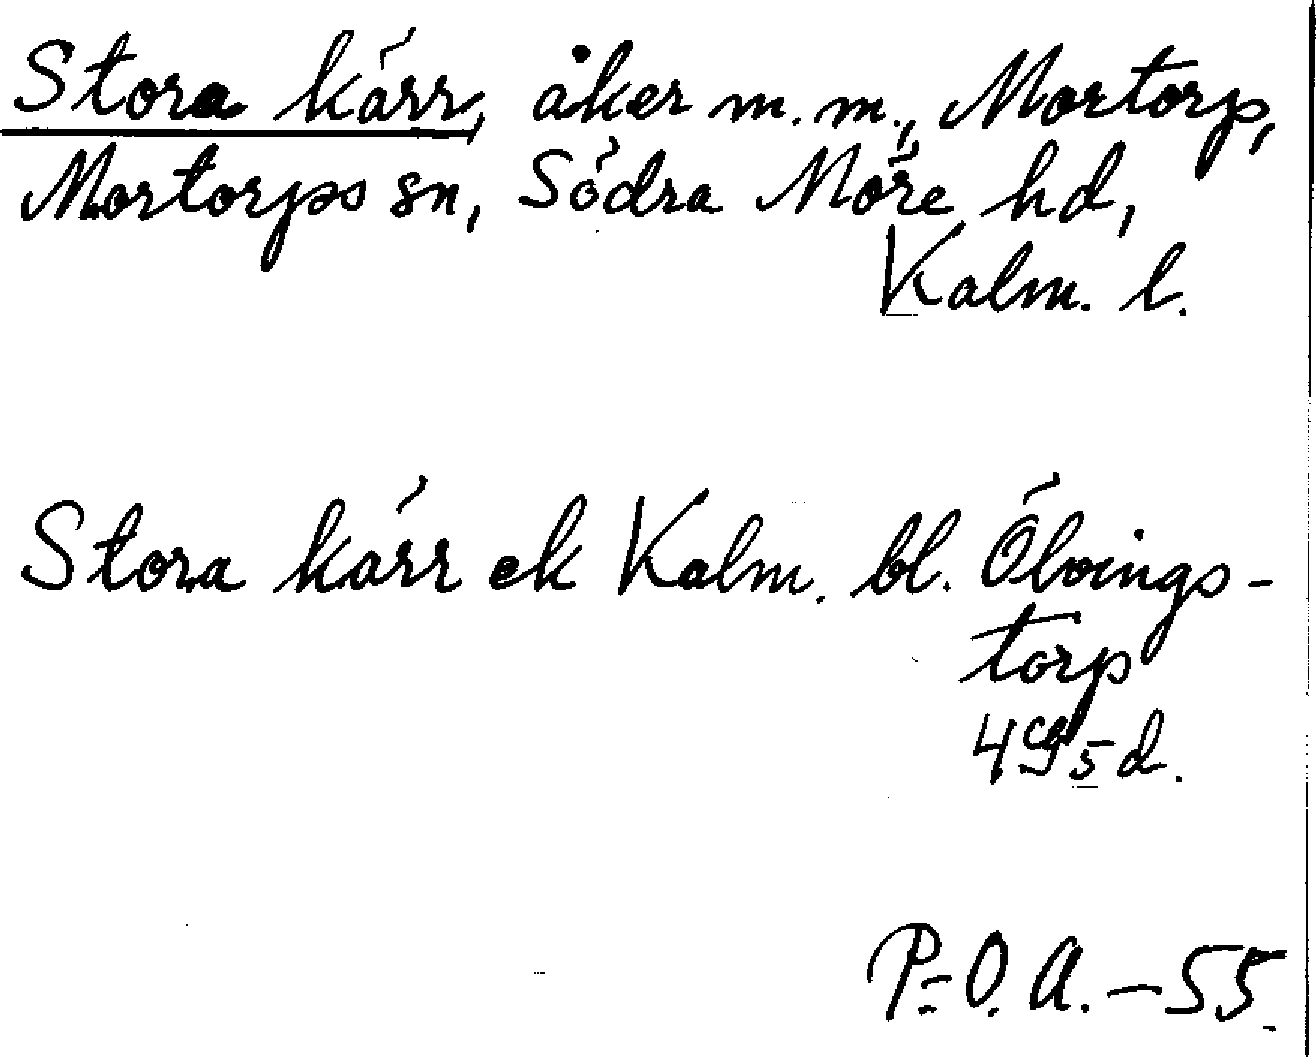 Stora kärr, åker m.m., Mortorp,
Mortorps sn, Södra Möre hd,
Kalm. l.
Stora kärr ek Kalm. bl. Ölvings-
torp
4g5d.
P.-O. A. - 55